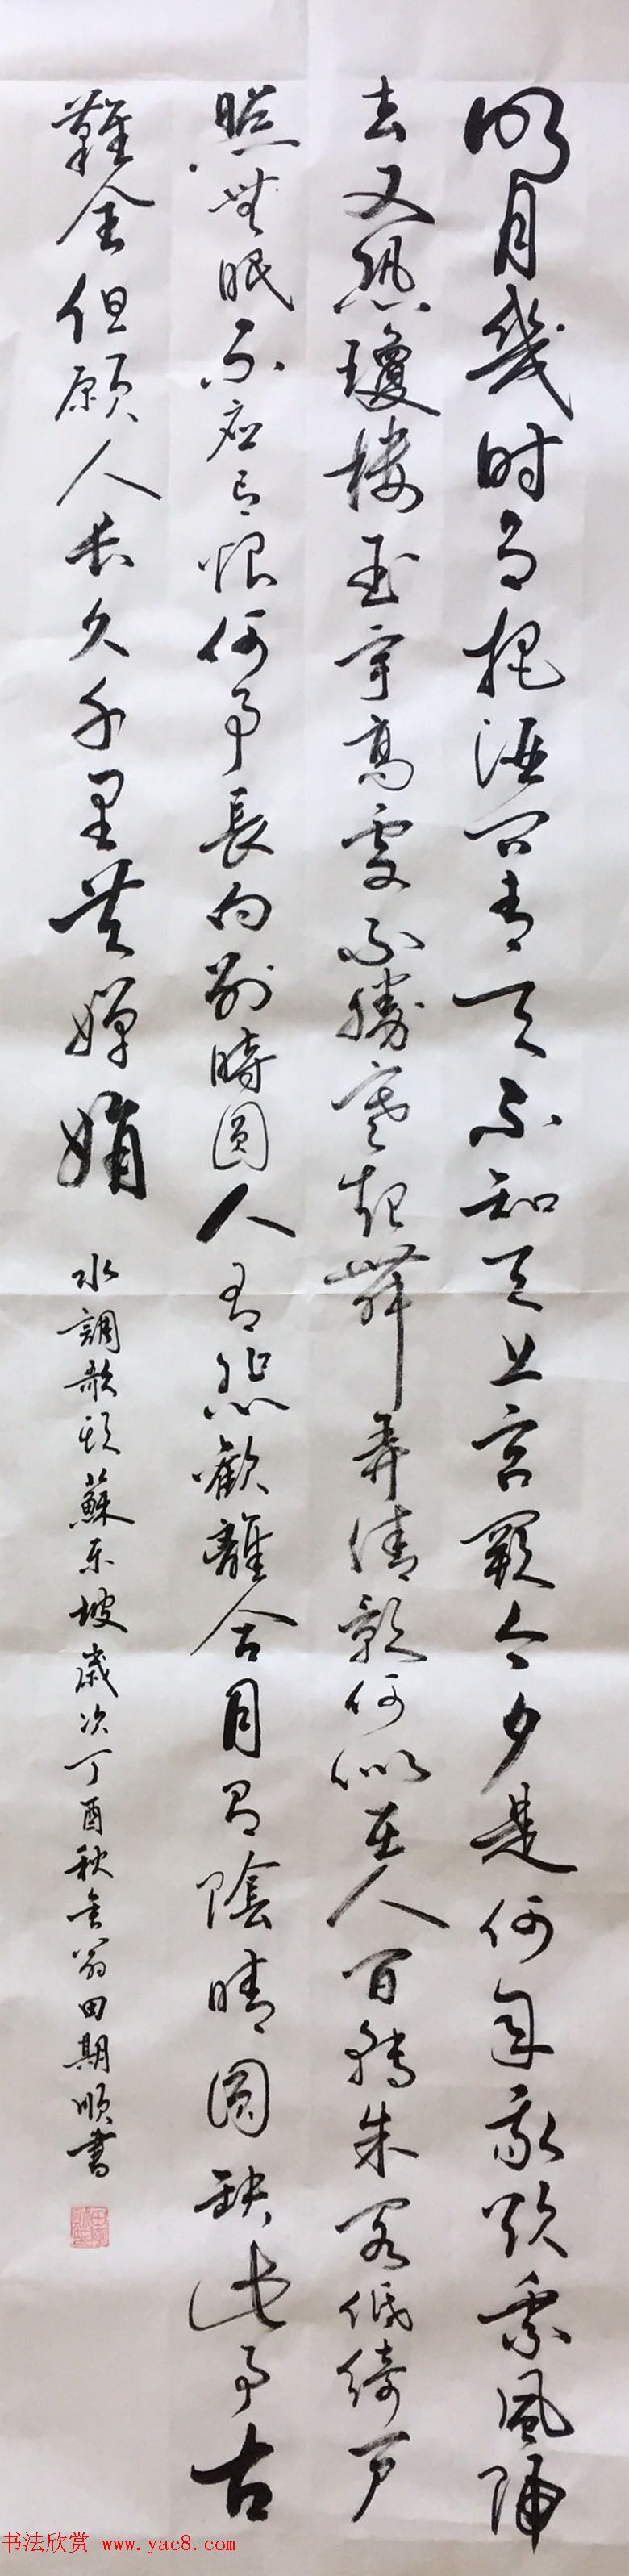 明月幾时有把酒问青天不知天上宫阙今夕是何年我欲乘風歸
去又恐瓊楼玉宇高處不勝寒起舞弄清影何似在人间转朱阁低綺户
照無眠不應有恨何事長向别時圓人有悲歡離合月有陰晴圆缺此事古
難全但願人长久千里共嬋娟 水調歌頭 蘇东坡 歲次丁酉秋 翁田期順書
书法欣赏 www.yac8.com